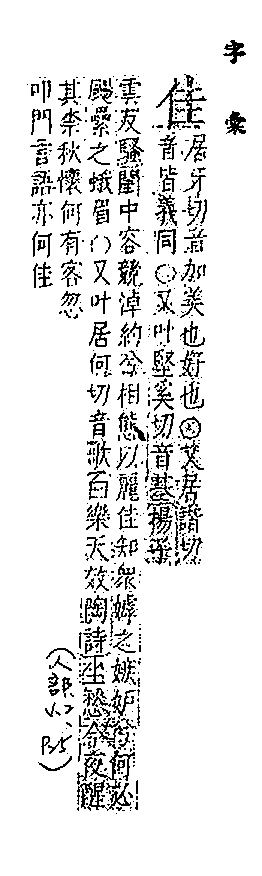 字彙
佳 居牙切音加美也好也○又居諧切
音皆義同○又叶堅奚切音基揚子
雲反騷閨中容競淖約兮相態以麗佳知衆嫭之嫉妒兮何必
颺纍之蛾眉○又叶居何切音歌白樂天效陶詩坐愁今夜醒
其奈秋懷何有客忽
叩門言語亦何佳
(人部